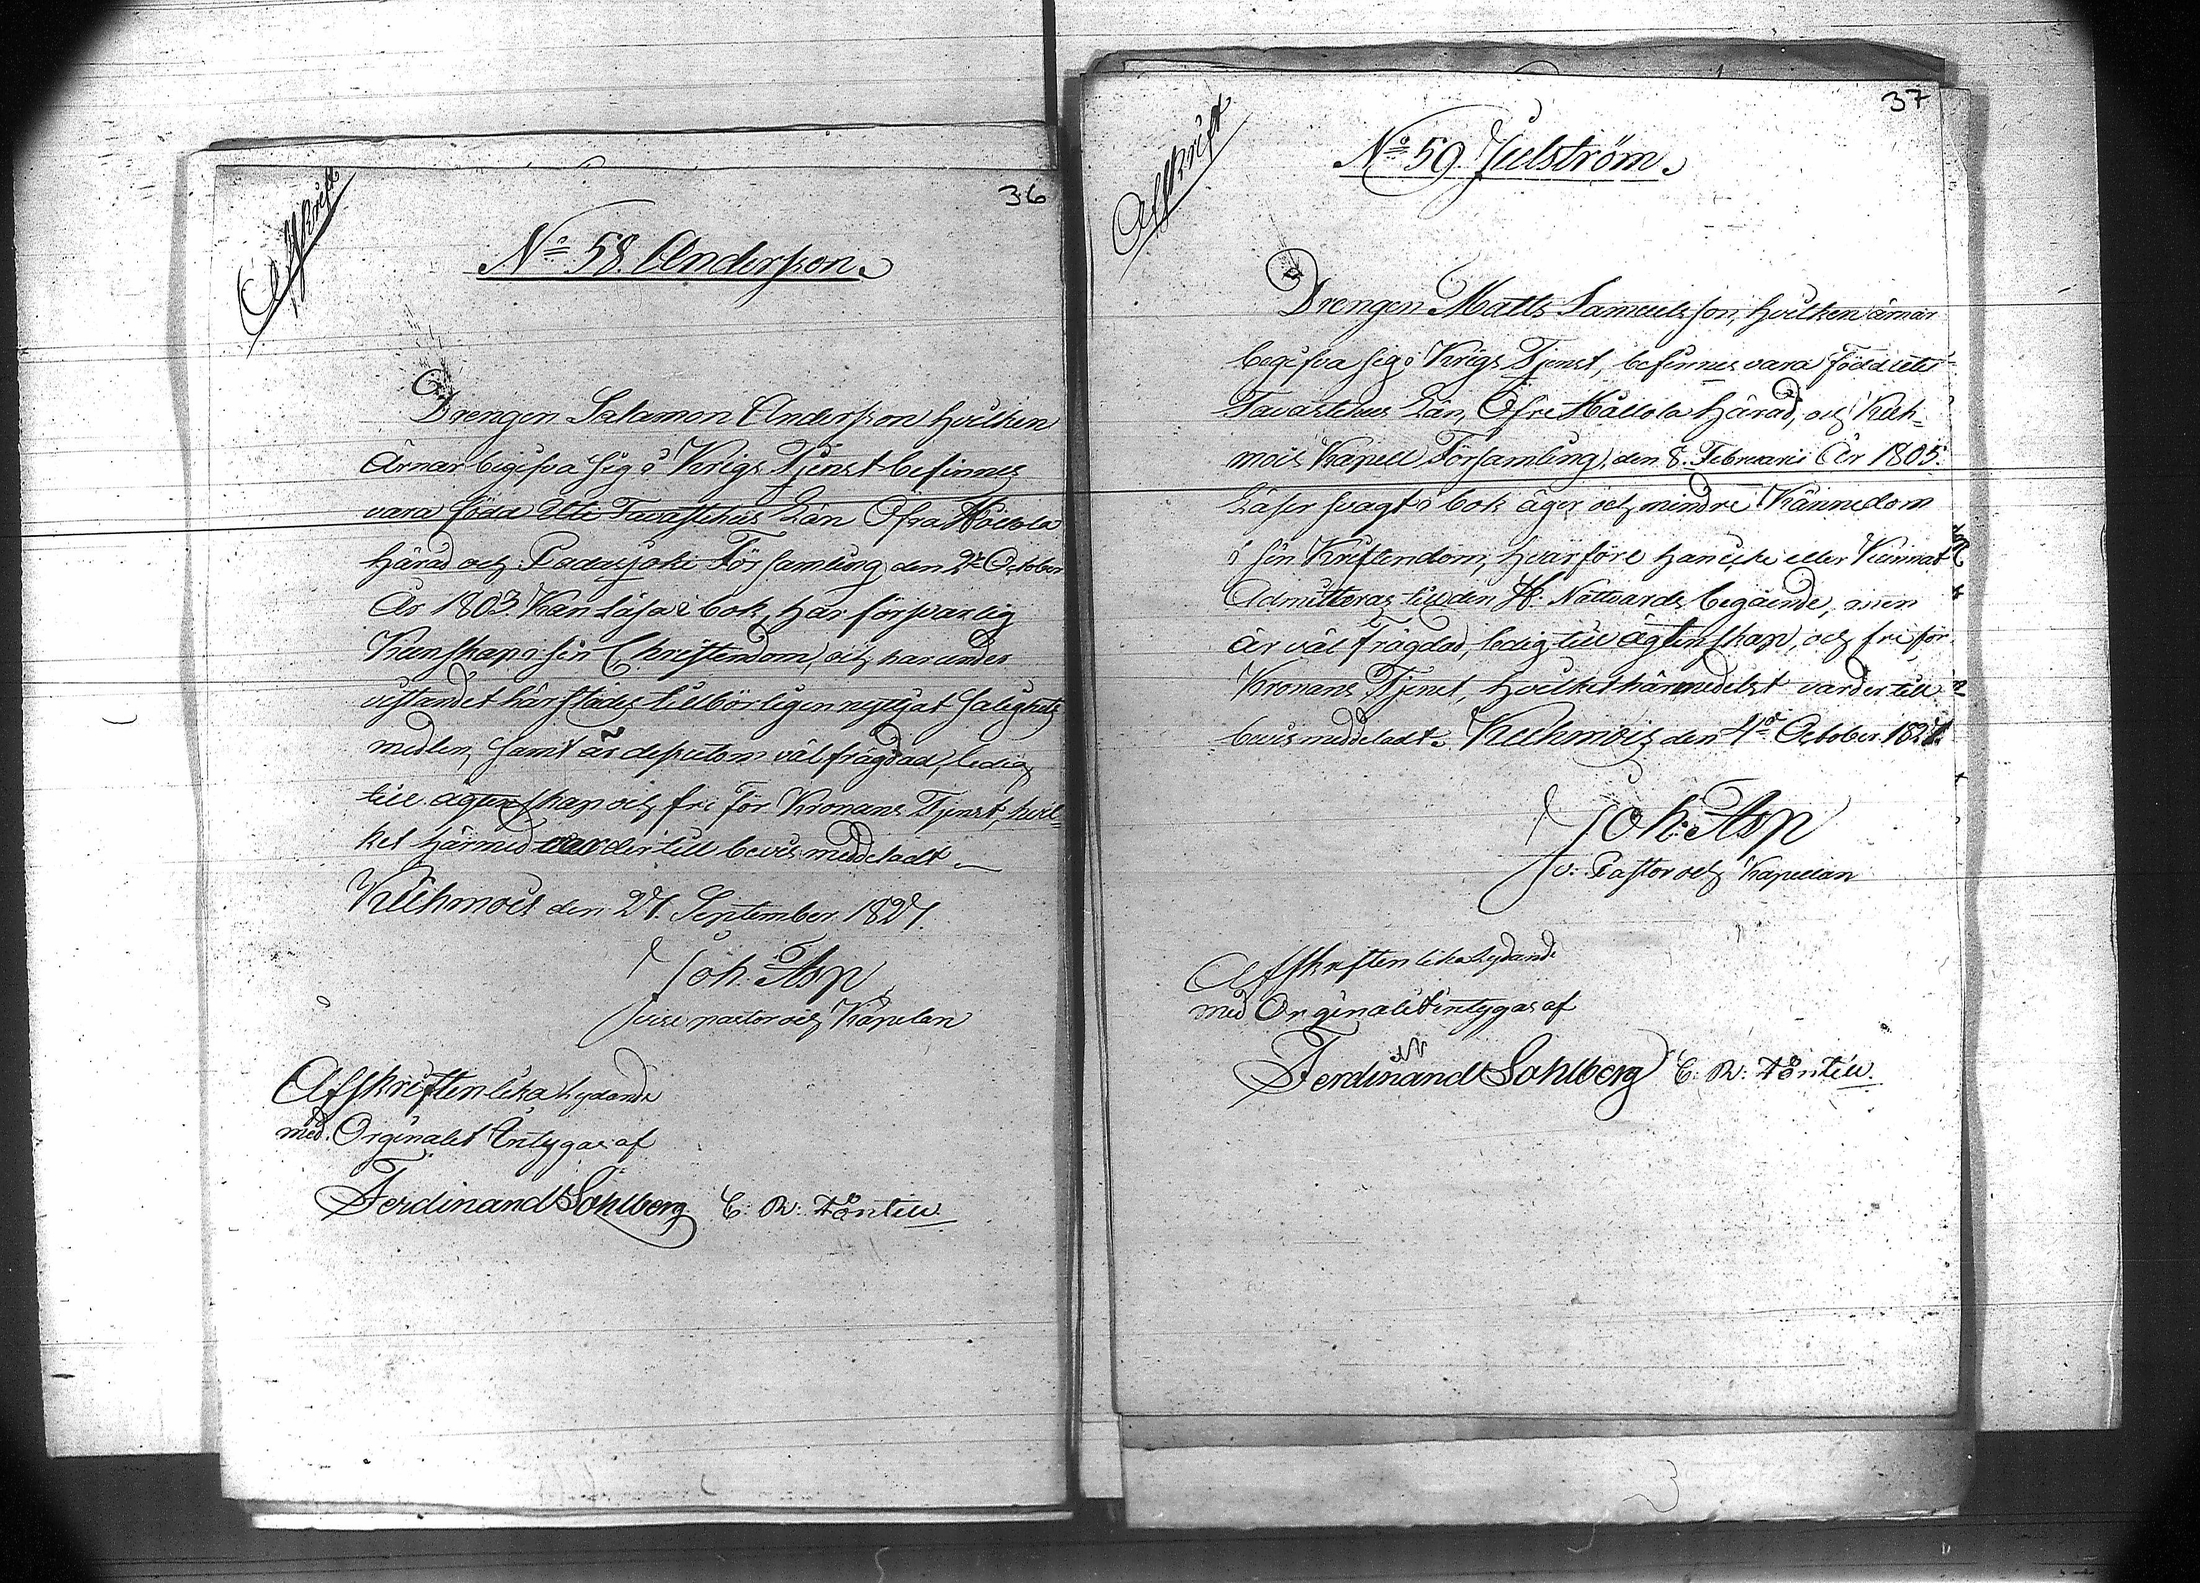 36
Afskrift
No 58. Andersson.
Drengen Salamon Andersson hvilken
Ärnar begifva sig i Krigs Tjenst befinnes
vara föda uti Tavastehus Län Öfra Hållola
härad och Padasjoki Församling den 2dre October
År 1803. Kan läsa i bok, har försvarlig
Kunskap i sin Christendom, och har under
vistandet härstädes tillbörligen nyttjat salighets
medlen, samt är dessutom väl frägdad, ledig
till ägtenskap och fri för Kronans Tjenst, hvil-
ket härmed varder till bevis meddeladt.
Kuhmois den 27. September 1827.
Joh: Asp
vice pastor och Kapelan
Afskriften lika lydande
med Orginalet Intygas af
Ferdinand Sohlberg C: R:
37
Afskrift
No 59 Julström.
Drengen Matts Samuelsson, hvilken ärnar
begifva sig i Krigs Tjenst, befinnes vara född uti
Tavastehus Län, Öfre Hållola härad, och Kuh-
mois Kapell Församling, den 8. Februarii År 1805.
Läser svagt i bok äger och mindre Kännedom
i sin Kristendom, hvarföre han icke eller Kunnat
Admitteras till den H: Nattvards begående, men
är väl frägdad, ledig till ägtenskap, och fri för
Kronans Tjenst, hvilket härmedelst varder till
bevis meddeladt. Kuhmois den 4de October. 1827.
Joh: Asp
v: Pastor och Kapellan
Afskriften lika lydande
med Orginalet intygas af
Ferdinand Sohlberg C: R: